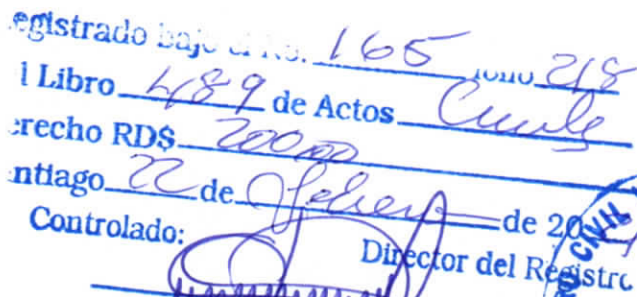 egistrado bajo el No. 165 folio 218
l Libro 489 de Actos Civiles
erecho RD$ 200.00
ntiago 22 de Febrero de 20
Controlado:
Director del Registro
CIVIL